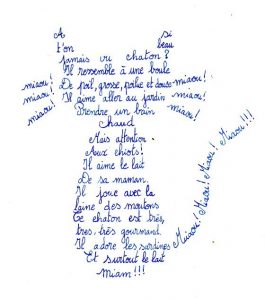 A si
t'on beau
jamais vu chaton?
Il ressemble à une boule
miaou! De poil, grosse, polie et douce miaou!
miaou! Il aime aller au jardin miaou!
miaou! Prendre un bain miaou!
Chaud
Mais attention
Aux chiots!
Il aime le lait
De sa maman.
Il joue avec la
laine des moutons
Ce chaton est très,
tres, très gourmand.
Il adore les sardines
Et surtout le lait
Miam!!!
Miaou! Miaou! Miaou! Miaou!!!